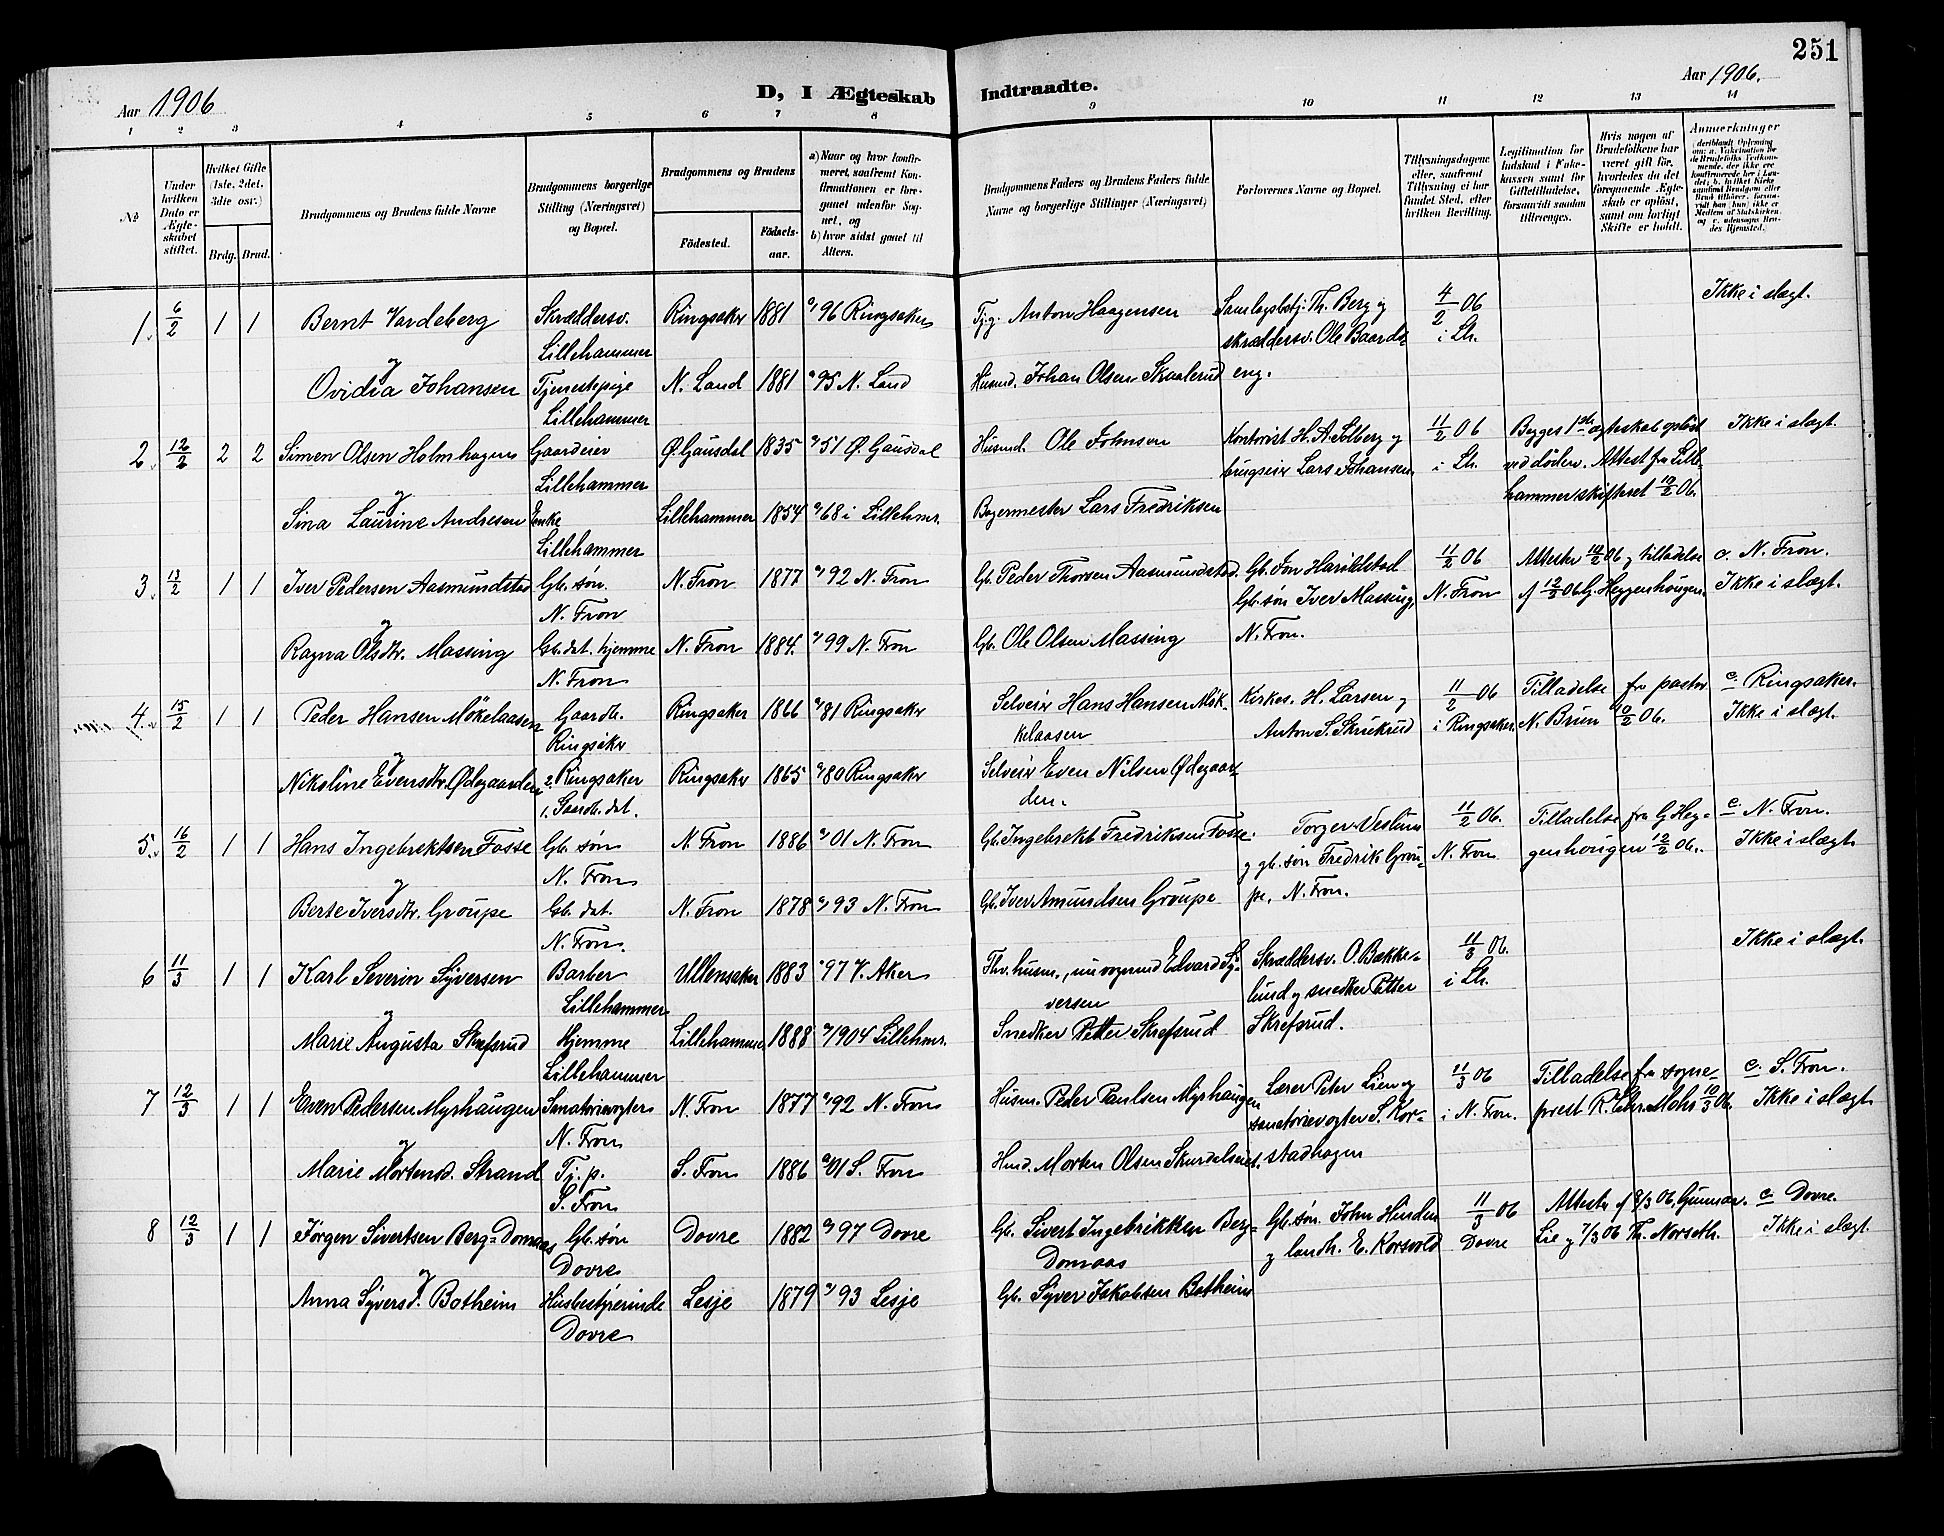 251
Aar 1906
D, I Ægteskab Indtraadte.
Aar 1906.
1 2 3 4 5 6 7 8 9 10 11 12 13 14
No
Under hvilken Dato er Ægteskabet stiftet.
Hvilket Gifte (1ste, 2det, 3die osv.)
Brdg. Brud.
Brudgommens og Brudens fulde Navne
Brudgommens borgerlige Stilling (Næringsvei) og Bopæl.
Brudgommens og Brudens
Födested.
Födselsaar.
a) Naar og hvor konfirmeret, saafremt Konfirmationen er foregaaet udenfor Sognet, og
b) hvor sidst gaaet til Alters.
Brudgommens Faders og Brudens Faders fulde Navne og borgerlige Stillinger (Næringsvei)
Forlovernes Navne og Bopæl.
Tillysningsdagene eller, saafremt Tillysning ei har fundet Sted, efter hvilken Bevilling.
Legitimation for Indskud i Enkekassen samt for Giftetilladelse, forsaavidt saadan tiltrænges.
Hvis nogen af Brudefolkene har været gift för, hvorledes da det foregaaende Ægteskab er oplöst, samt om lovligt Skifte er holdt.
Anmærkninger
1. 6/2 1 1 Bernt Vardeberg Skræddersv. Ringsaker 1881 96 Ringsaker Anton Haagensen Th. Berg og 4/2 06 Ikke i slægt.
Lillehammer skræddersv. Ole Baards- i Lh.
og
Ovidia Johansen Tjenestepige N. Land 1881 95 N. Land Husmd. Johan Olsen Skaalerud eng.
Lillehammer
2. 12/2 2 2 Simen Olsen Holmhagen Gaardeier Ø. Gausdal 1835 51 Ø. Gausdal Husmd. Ole Johnsen Kontorist H. A. Solberg og 11/2 06 Begges 1ste ægteskab opløst Ikke i slægt.
Lillehammer brugseier Lars Johansen. i Lh. ved døden. Attest fra Lille-
og hammer skifteret 10/2 06.
Sina Laurine Andresen Enke Lillehammer 1854 68 i Lillehmr. Bagermester Lars Fredriksen
Lillehammer
3. 13/2 1 1 Iver Pedersen Aasmundstad Gb. søn. N. Fron 1877 92 N. Fron Gb. Peder Thorsen Aasmundstad. Gb. Jon Harildstad 11/2 06 Attester 10/2 06 og tilladelse c. N. Fron.
N. Fron Gb. søn Iver Massing, N. Fron af 12/2 06 G. Heggenhougen. Ikke i slægt.
og
Ragna Olsdtr. Massing Gb. dat. hjemme N. Fron 1884. 99 N. Fron Gb. Ole Olsen Massing N. Fron.
N. Fron
4. 15/2 1 1 Peder Hansen Mökelaasen Gaardb. Ringsaker 1866 81 Ringsaker Selveier Hans Hansen Mök- Kirkes. H. Larsen og 11/2 06 Tilladelse fra pastor c. Ringsaker.
Ringsaker kelaasen Anton S. Skrukrud i Ringsaker. N. Bruun 10/2 06. Ikke i slægt.
og
Nikoline Evensdtr. Ødegaarden 2. Ringsaker Ringsaker 1865 80 Ringsaker Selveier Even Nilsen Ødegaar-
1. Gaardb. dat. den.
5. 16/2 1 1 Hans Ingebrektsen Fosse Gb. søn N. Fron 1886 01 N. Fron Gb. Ingebrekt Fredriksen Fosse. Torger Veslum 11/2 06. Tilladelse fra G Heg- c. N. Fron.
N. Fron og gb. søn Fredrik Grou- N. Fron genhougen 12/2 06. Ikke i slægt.
og
Berte Iversdtr. Groupe Gb. dat. N. Fron 1878 93 N. Fron Gb. Iver Amundsen Groupe pe, N. Fron.
N. Fron.
6 11/3 1 1 Karl Severin Syversen Barber Ullensaker 1883 97 V. Aker Edvard Sy- Skræddersv. O. Bække- 11/3 06. Ikke i slægt.
Lillehammer versen lund og snedker Petter i Lh.
og
Marie Augusta Skrefsrud Hjemme Lillehammer 1888 1904 Lillehmr. Snedker Petter Skrefsrud Skrefsrud.
Lillehammer
7 12/3 1 1 Even Pedersen Myrhaugen Sanatorievogter N. Fron 1877 92 N. Fron Husm. Peder Paulsen Myrhaugen Lærer Peter Lien og 11/3 06 Tilladelse fra sogne- c. S. Fron.
N. Fron sanatorievogter S. Kor- i N. Fron. prest R. Chr. Mohr 10/3 06. Ikke i slægt.
og
Marie Mortensd. Strand Tj. p. S. Fron 1886 01 S. Fron Husmd. Morten Olsen stadhagen
S. Fron
8 12/3 1 1 Jörgen Sivertsen Berg-Domaas Gb. søn Dovre 1882 97 Dovre Gb. Sivert Ingebriktsen Berg- Gb. søn. John Hinden 11/3 06 Attester af 8/3 06, Gunnar c. Dovre.
Dovre Domaas og landh. E. Korsvold Dovre Lie og 7/3 06 Th. Norseth. Ikke i slægt
og
Anna Syversd. Botheim Husbestyrerinde Lesje 1879 93 Lesje Gb. Syver Jakobsen Botheim
Dovre